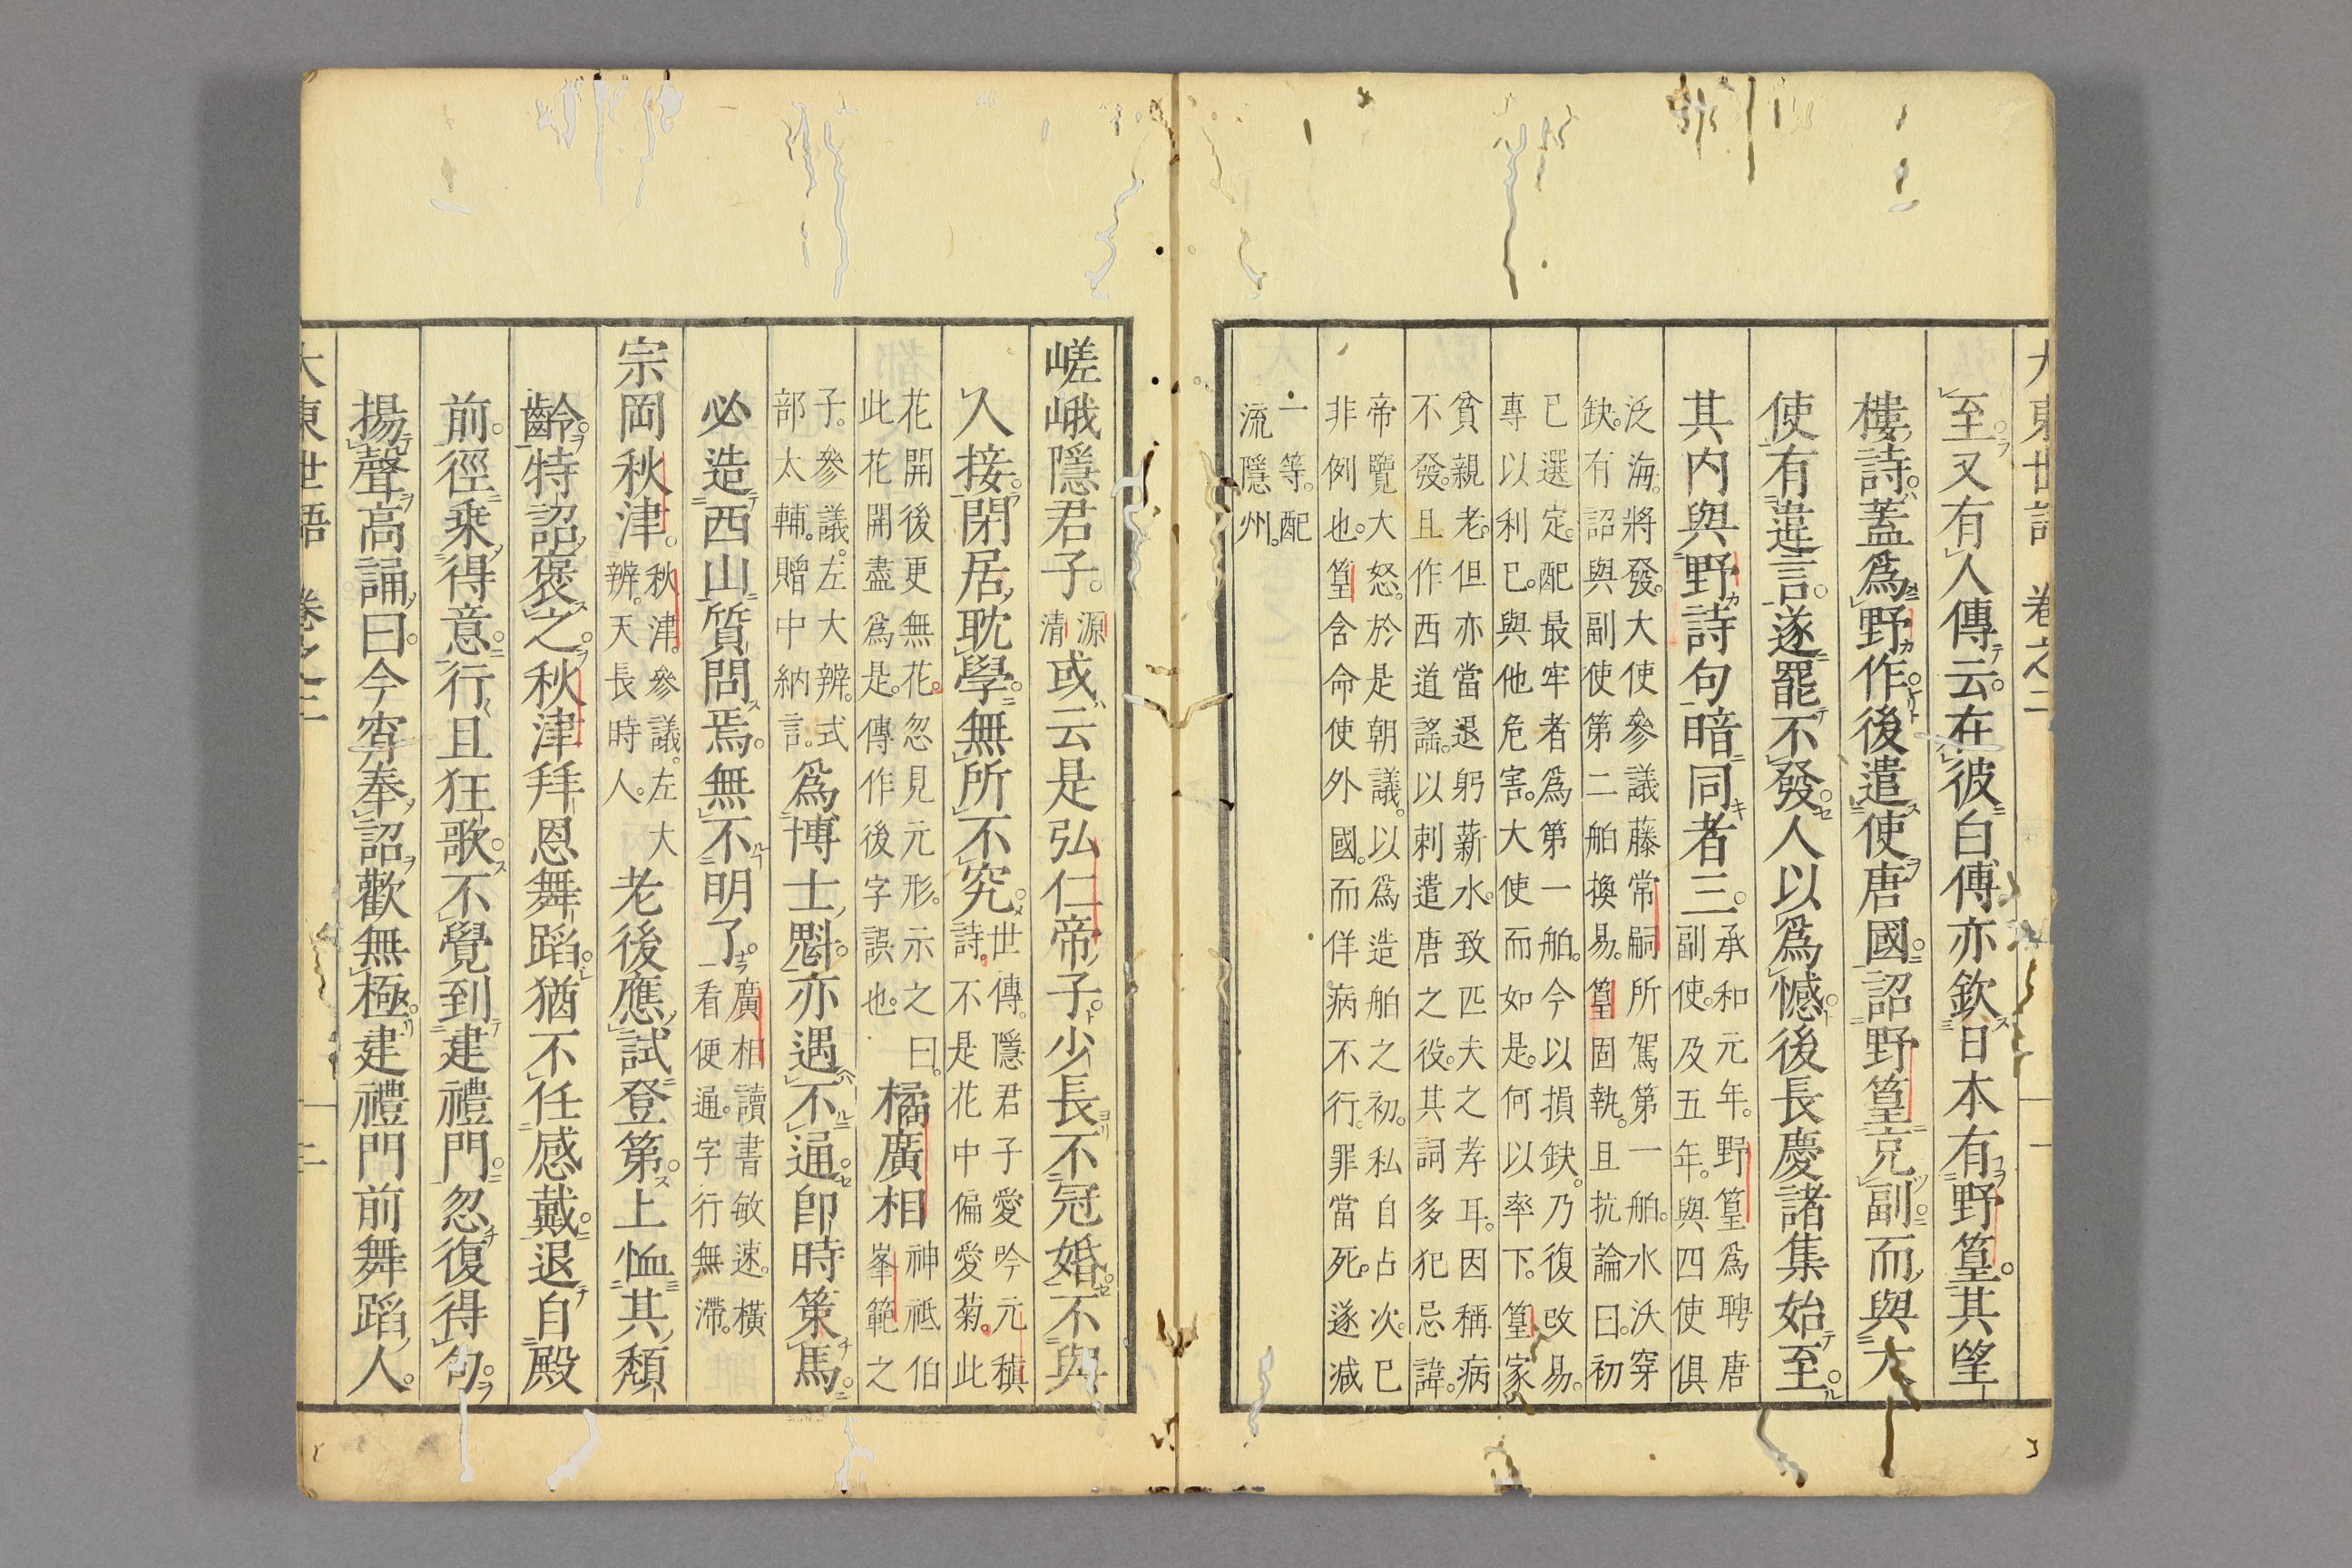 大東世語　卷之二　一
至。又有人傳云。在彼白傅亦欽日本有野篁。其望
樓詩。蓋爲野作。後遣使唐國。詔野篁充副。而與大
使有違言。遂罷不發。人以爲憾。後長慶諸集始至。
其内與野詩句暗同者三。
承和元年。野篁爲聘唐
副使。及五年。與四使俱
泛海。將發。大使參議藤常嗣所駕第一舶。水沃穿
缺。有詔與副使第二舶換易。篁固執。且抗論曰。初
已選定。配最牢者爲第一舶。今以損缺。乃復改易。
專以利已。與他危害。大使而如是。何以率下。篁家
貧親老。但亦當退躬薪水。致匹夫之孝耳。因稱病
不發。且作西道謠。以刺遣唐之役。其詞多犯忌諱。
帝覽大怒。於是朝議。以爲造舶之初。私自占次。已
非例也。篁含命使外國。而佯病不行。罪當死。遂减
一等。配
流隱州。
嵯峨隱君子。
源
清
或云是弘仁帝子。少長不冠婚。不與
人接。閉居耽學。無所不究。
世傳。隱君子愛吟元稹
詩。不是花中偏愛菊。此
花開後更無花。忽見元形。示之曰。
此花開盡爲是。傳作後字誤也。
橘廣相
神祗伯
峯範之
子。參議。左大辨。式
部太輔。贈中納言。
爲博士。亦遇不通。即時策馬。
必造西山質問焉。無不明了。
廣相讀書敏速。橫
一看便通。字行無滯。
宗岡秋津。
秋津。參議。左大
辨。天長時人。
老後應試登第。上恤其頽
齡。特詔褒之。秋津拜恩舞蹈。猶不任感戴。退自殿
前。徑乘得意。行且狂歌。不覺到建禮門。忽復得句。
揚聲高誦曰。今宵奉詔歡無極。建禮門前舞蹈人。
大東世語　卷之二　二